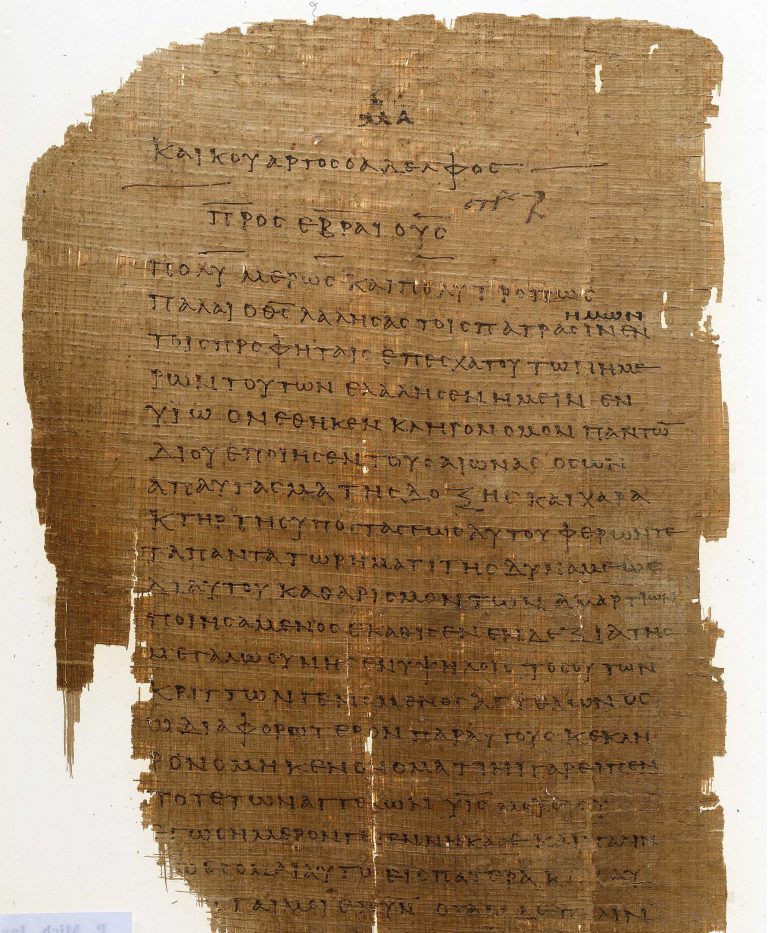 μα
ΚΑΙΚΟΥΑΡΤΟΣΟΑΔΕΛΦΟΣ
ΠΡΟΣ ΕΒΡΑΙΟΥΣ
ΠΟΛΥΜΕΡΩΣ ΚΑΙΠΟΛΥΤΡΟΠΩΣ
ΠΑΛΑΙ Ο Θ̅Σ̅ ΛΑΛΗΣΑΣ ΤΟΙΣ ΠΑΤΡΑΣΙΝ ΗΜΩΝ ΕΝ
ΤΟΙΣ ΠΡΟΦΗΤΑΙΣ ΕΠΕΣΧΑΤΟΥ ΤΩΝ ΗΜΕ
ΡΩΝ ΤΟΥΤΩΝ ΕΛΑΛΗΣΕΝ ΗΜΕΙΝ ΕΝ
ΥΙΩ ΟΝ ΕΘΗΚΕΝ ΚΛΗΡΟΝΟΜΟΝ ΠΑΝΤΩ̅
ΔΙ ΟΥ ΕΠΟΙΗΣΕΝ ΤΟΥΣ ΑΙΩΝΑΣ ΟΣ ΩΝ
ΑΠΑΥΓΑΣΜΑ ΤΗΣ ΔΟΞΗΣ ΚΑΙ ΧΑΡΑ
ΚΤΗΡ ΤΗΣ ΥΠΟΣΤΑΣΕΩΣ ΑΥΤΟΥ ΦΕΡΩΝ ΤΕ
ΤΑ ΠΑΝΤΑ ΤΩ ΡΗΜΑΤΙ ΤΗΣ ΔΥΝΑΜΕΩΣ
ΔΙ ΑΥΤΟΥ ΚΑΘΑΡΙΣΜΟΝ ΤΩΝ ΑΜΑΡΤΙΩΝ
ΠΟΙΗΣΑΜΕΝΟΣ ΕΚΑΘΙΣΕΝ ΕΝ ΔΕΞΙΑ ΤΗΣ
ΜΕΓΑΛΩΣΥΝΗΣ ΕΝ ΥΨΗΛΟΙΣ ΤΟΣΟΥΤΩΝ
ΚΡΙΤΤΩΝ ΓΕΝΟΜΕΝΟΣ ΑΓΓΕΛΩΝ ΟΣ
Ω ΔΙΑΦΟΡΩΤΕΡΟΝ ΠΑΡ ΑΥΤΟΥΣ ΚΕΚΛΗ
ΡΟΝΟΜΗΚΕΝ ΟΝΟΜΑ ΤΙΝΙ ΓΑΡ ΕΙΠΕΝ
ΠΟΤΕ ΤΩΝ ΑΓΓΕΛΩΝ Υ̅Ι̅Σ̅ ΜΟΥ ΕΙ ΣΥ
ΕΓΩ ΣΗΜΕΡΟΝ ΓΕΓΕΝΝΗΚΑ ΣΕ ΚΑΙ ΠΑΛΙΝ
ΕΣΟΜΑΙ ΑΥΤΩ ΕΙΣ ΠΑΤΕΡΑ
P. Mich. Inv.